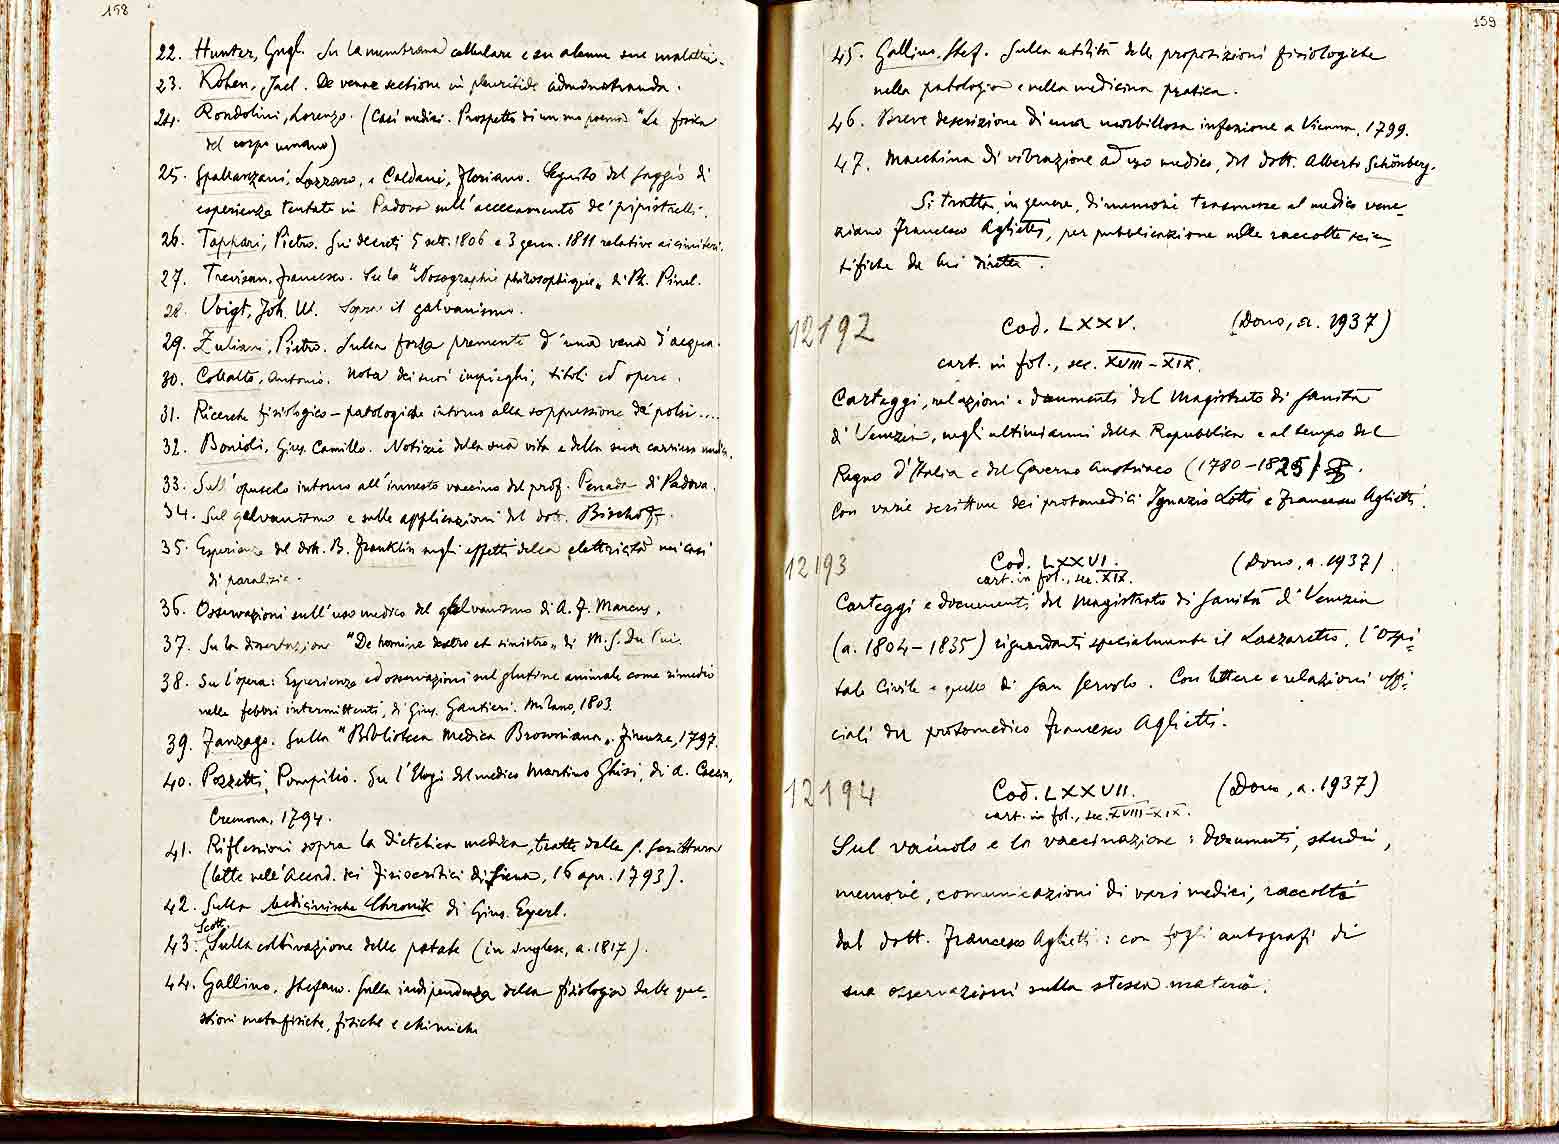 158
22. Hunter, Gugl. Su la membrana cellulare e su alcune sue malattie.
23. Kohen, Jael. De venae sectione in pleuritide administranda.
24. Rondolini, Lorenzo. (Casi medici. Prospetto di un suo poema "La fisica
del corpo umano)
25. Spallanzani, Lazzaro, e Caldani, Floriano. Seguito del saggio di
esperienze tentate in Padova sull'accecamento de' pipistrelli.
26. Tappari, Pietro. Sui decreti 5 sett. 1806 e 3 genn. 1811 relative ai cimiteri.
27. Trevisan, Francesco. Su la "Nosographie philosophique" di Ph. Pinel.
28. Voigt, Joh. W. Sopra il galvanismo.
29. Zuliani, Pietro. Sulla forza premente d'una vena d'acqua.
30. Collalto, Antonio. Nota dei suoi impieghi, titoli ed opere.
31. Ricerche fisiologico-patologiche intorno alla soppressione de' polsi....
32. Bonioli, Gius. Camillo. Notizie della sua vita e della sua carriera medica.
33. Sull'opuscolo intorno all'innesto vaccino del prof. Penada di Padova.
34. Sul galvanismo e sulle applicazioni del dott. Bischoff.
35. Esperienze del dott. B. Franklin sugli effetti della elettricità nei casi
di paralisie.
36. Osservazioni sull'uso medico del galvanismo di A. F. Marcus.
37. Su la dissertazione "De homine dextro et sinistro" di M. S. Du Pui.
38. Su l'opera: Esperienze ed osservazioni sul glutine animale come rimedio
nelle febbri intermittenti, di Gius. Gautieri. Milano, 1803.
39. Fanzago. Sulla "Biblioteca medica Browniana". Firenze, 1797.
40. Pozzetti, Pompilio. Su l'Elogio del medico Martino Ghisi, di A.
Cremona, 1794.
41. Riflessioni sopra la dietetica medica, tratte dalla S. Scrittura
(lette nell'Accad. dei Fisiocritici di Siena, 16 apr. 1793).
42. Sulla Medicinische Chronik di Gius. Eyerl.
43. Scott. Sulla coltivazione delle patate (in inglese, a. 1817).
44. Gallino, Stefano. Sulla indipendenza della fisiologia dalle que-
stioni metafisiche, fisiche e chimiche
159
45. Gallino, Stef. Sulla utilità delle proposizioni fisiologiche
nella patologia e nella medicina pratica.
46. Breve descrizione di una morbillosa infezione a Vienna, 1799.
47. Macchina di vibrazione ad uso medico, del dott. Alberto Schönberg.
Si tratta, in genere, di memorie trasmesse al medico vene-
ziano Francesco Aglietti, per pubblicazione nelle raccolte scien-
tifiche da lui dirette.
12192 Cod. LXXV. (Dono, a. 1937)
cart. in fol., sec. XVIII-XIX.
Carteggi, relazioni e documenti del Magistrato di Sanità
di Venezia, negli ultimi anni della Repubblica e al tempo del
Regno d'Italia e del Governo Austriaco (1780-1825).
Con varie scritture dei protomedici Ignazio Lotti e Francesco Aglietti.
12193 Cod. LXXVI. (Dono, a. 1937)
cart. in fol., sec. XIX.
Carteggi e documenti del Magistrato di Sanità di Venezia
(a. 1804-1835) riguardanti specialmente il Lazzaretto, l'Ospi-
tale Civile e quello di San Servolo. Con lettere e relazioni uffi-
ciali del protomedico Francesco Aglietti.
12194 Cod. LXXVII. (Dono, a. 1937)
cart. in fol., sec. XVIII-XIX.
Sul vaiuolo e la vaccinazione: documenti, studii,
memorie, comunicazioni di vari medici, raccolte
dal dott. Francesco Aglietti: con fogli autografi di
sue osservazioni sulla stessa materia.